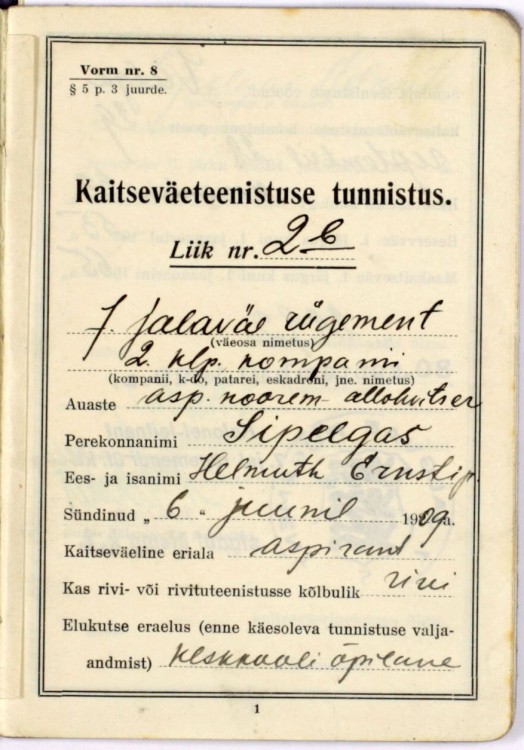 Vorm nr. 8
§ 5 p. 3 juurde.
Kaitseväeteenistuse tunnistus.
Liik nr. 2 b
7. jalaväe rügement
(väeosa nimetus)
2. klp. kompanii
(kompanii, k-do, patarei, eskadroni, jne. nimetus)
Auaste asp. noorem-allohvitser
Perekonnanimi Sipelgas
Ees- ja isanimi Helmuth Ernsti p.
Sündinud „ 6 “ juunil 1909 a.
Kaitseväeline eriala aspirant
Kas rivi- või rivituteenistusse kõlbulik rivi
Elukutse eraelus (enne käesoleva tunnistuse valja-
andmist) keskkooli õpilane
1